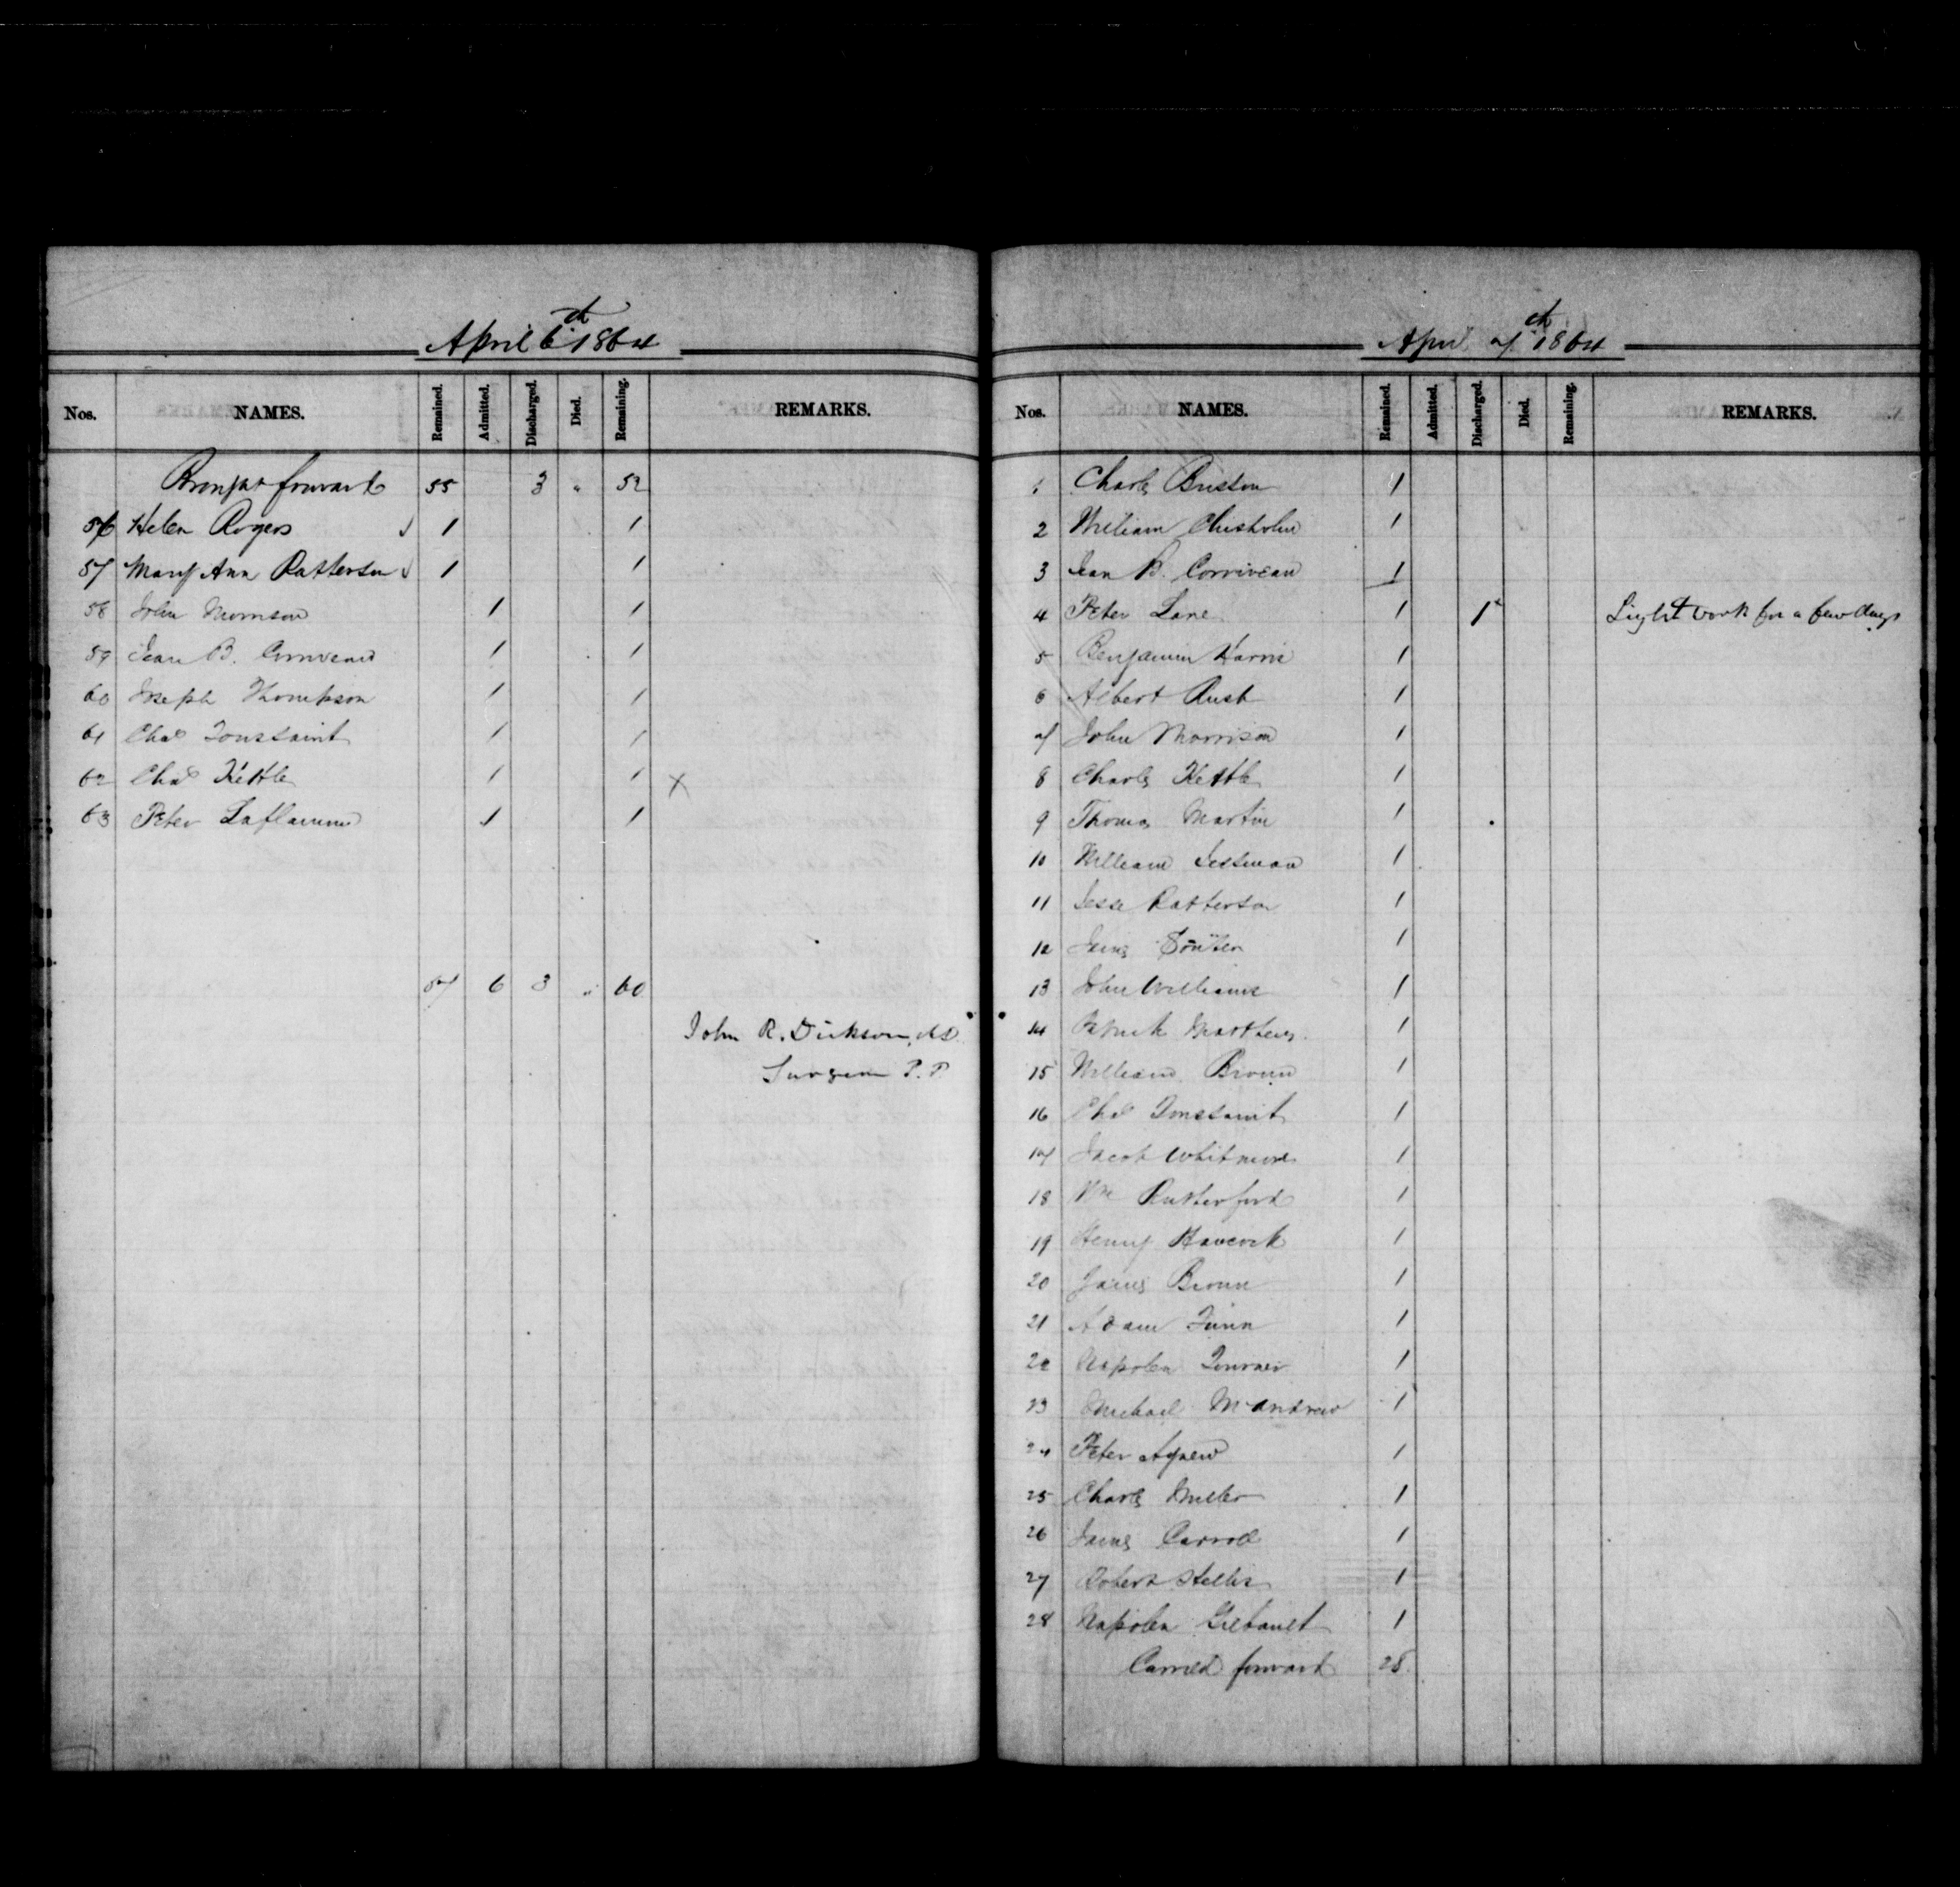 April 6th 1864
Nos. NAMES. Remained. Admitted. Discharged. Died. Remaining. REMARKS.
Brought forward 55 3 " 52
56 Helen Rogers 1 1
57 Mary Ann Patterson 1 1
58 John Morrison 1 1
59 Jean B. Corriveau 1 1
60 Joseph Thompson 1 1
61 Chas Toussaint 1 1
62 Chas Kettle 1 1 x
63 Peter Laflamme 1 1
57 6 3 " 60
John R. Dickson, M.D.
Surgeon P.P.
April 7th 1864
Nos. NAMES. Remained. Admitted. Discharged. Died. Remaining. REMARKS.
1 Charles Buston 1
2 William Chisholm 1
3 Jean B. Corriveau 1
4 Peter Lane 1 1 Light work for a few days
5 Benjamin Harris 1
6 Albert Rush 1
7 John Morrison 1
8 Charles Kettle 1
9 Thomas Martin 1
10 William 1
11 Jesse Patterson 1
12 James 1
13 John Williams 1
14 Patrick Matthews 1
15 William Brown 1
16 Chas Toussaint 1
17 Jacob Whitmore 1
18 Wm Rutherford 1
19 Henry Havcock 1
20 James Brown 1
21 Adam Finn 1
22 Napoleon Tournier 1
23 Michael McAndrew 1
24 Peter Agnew 1
25 Charles Miller 1
26 James Carroll 1
27 Robert Stelles 1
28 Napoleon Gilbault 1
Carried forward 28